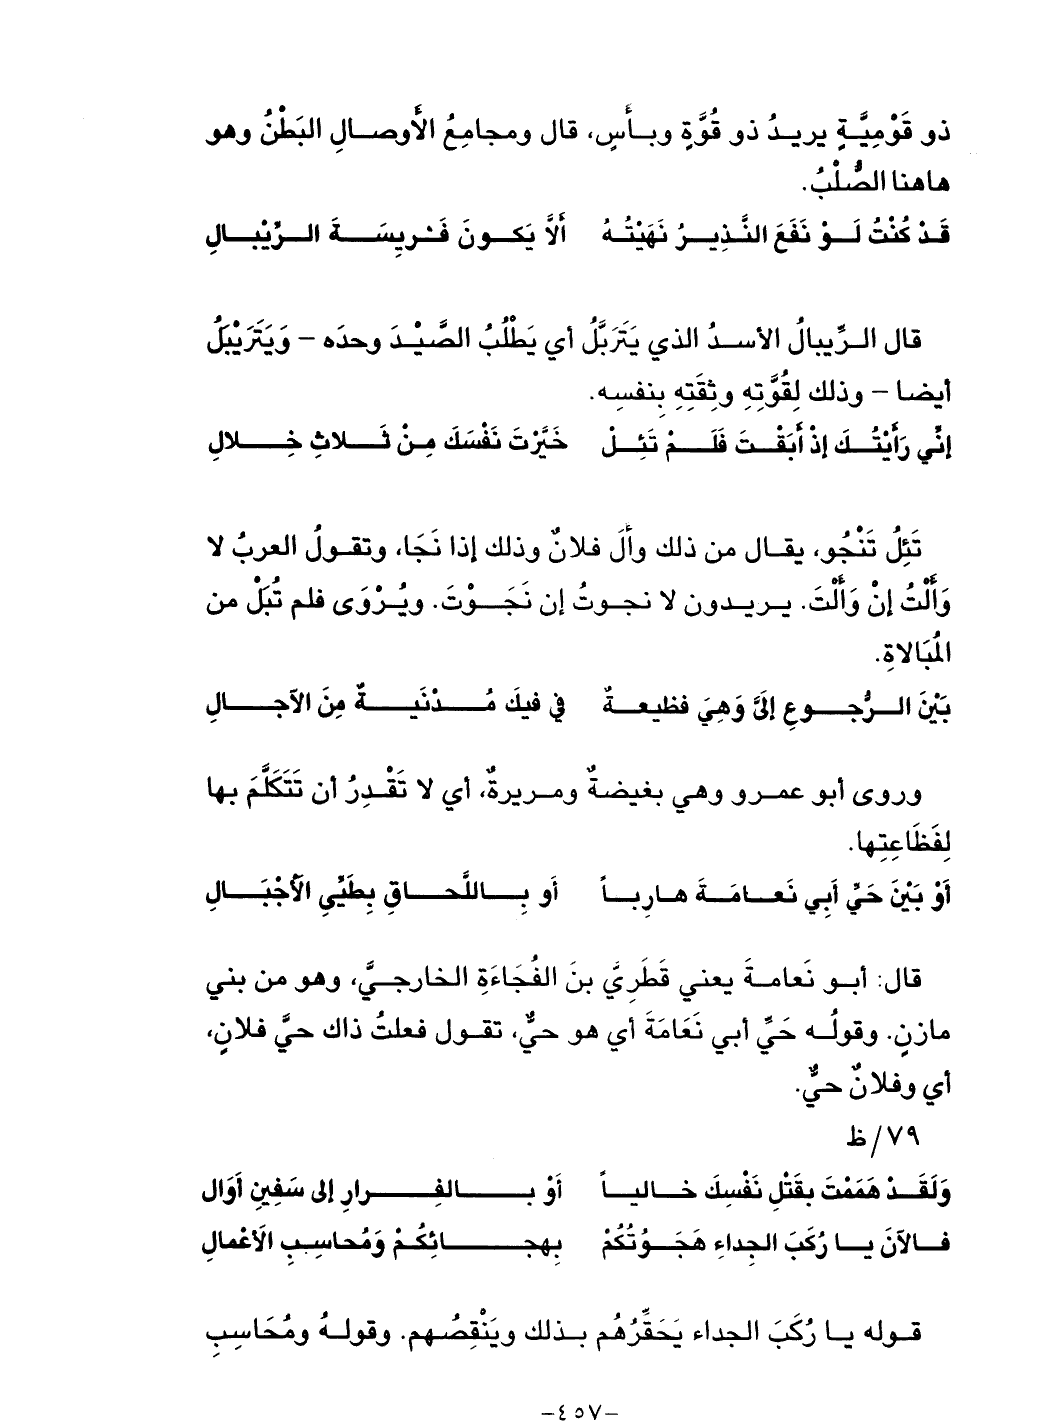 ذو قَوْمِيَّةٍ يريدُ ذو قُوَّةٍ وبأْسٍ، قال ومجامِعُ الأَوصالِ البَطْنُ وهو
هاهنا الصُّلْبُ.
قَدْ كُنْتُ لَوْ نَفَعَ النَّذِيرُ نَهَيْتُهُ أَلَّا يَكونَ فَريِسَةَ الرِّيْبالِ
قال الرِّيبالُ الأسدُ الذي يَتَرَبَّلُ أي يَطْلُبُ الصَّيْدَ وحدَه – وَيَتَرَيْبَلُ
أيضا – وذلك لِقُوَّتِهِ وثِقَتِهِ بِنفسِه.
إنِّي رَأَيْتُكَ إذْ أَبَقْتَ فَلَمْ تَئِلْ خَيَّرْتَ نَفْسَكَ مِنْ ثَلاثِ خِلالِ
تَئِلُ تَنْجُو، يقال من ذلك وأَلَ فلانٌ وذلك إذا نَجَا، وتقولُ العربُ لا
وَأَلْتُ إنْ وَأَلْتَ. يريدون لا نجوتُ إن نَجَوْتَ. ويُرْوَى فلم تُبَلْ من
المُبَالاةِ.
بَيْنَ الرُّجوعِ إلَيَّ وَهِيَ فظيعةٌ في فيكَ مُدْنَيةٌ مِنَ الآجالِ
وروى أبو عمرو وهي بغيضةٌ ومريرةٌ، أي لا تَقْدِرُ أن تَتَكَلَّمَ بها
لِفَظَاعِتِها.
أَوْ بَيْنَ حَيِّ أَبِي نَعامَةَ هارِباً أو بِاللَّحاقِ بِطَيِّيِ الأَجْبَالِ
قال: أبو نَعامةَ يعني قَطَرِيَّ بنَ الفُجَاءَةِ الخارجيَّ، وهو من بني
مازنٍ. وقولُه حَيِّ أبي نَعَامَةَ أي هو حيٌّ، تقول فعلتُ ذاك حيَّ فلانٍ،
أي وفلانٌ حيٌّ.
٧٩/ظ
وَلَقَدْ هَمَمْتَ بِقَتْلِ نَفْسِكَ خالياً أَوْ بالفِرارِ إلى سَفِينِ أوَال
فالآنَ يا رُكَبَ الجِداءِ هَجَوْتُكُمْ بِهِجائِكُمْ وَمُحاسِبِ الَاعْمالِ
قوله يا رُكَبَ الجداء يَحَقِّرُهُم بذلك ويَنْقِصُهم. وقولهُ ومُحَاسِبِ
–٤٥٧–